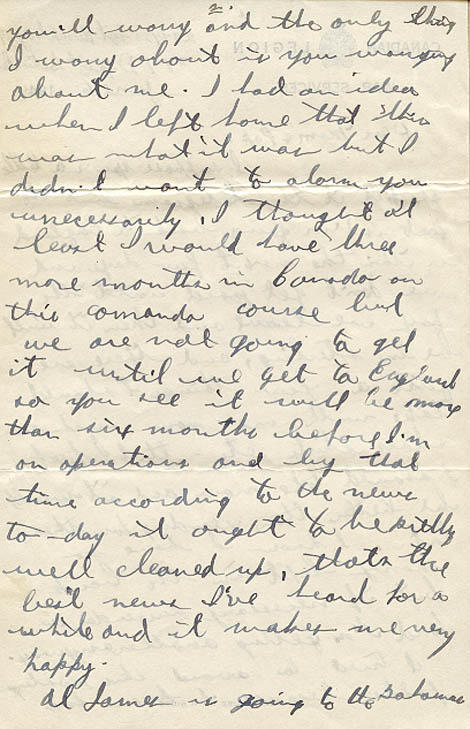 2
you'll worry and the only thing
I worry about is you worrying
about me. I had an idea
when I left home that this
was what it was but I
didn't want to alarm you
unnecessarily, I thought at
least I would have three
more months in Canada on
this comando course but
we are not going to get
it until we get to England
so you see it will be more
than six months before I'm
on operations and by that
time according to the news
to-day it ought to be pretty
well cleaned up, thats the
best news I've heard for a
while and it makes me very
happy.
Al James is going to the Bahamas